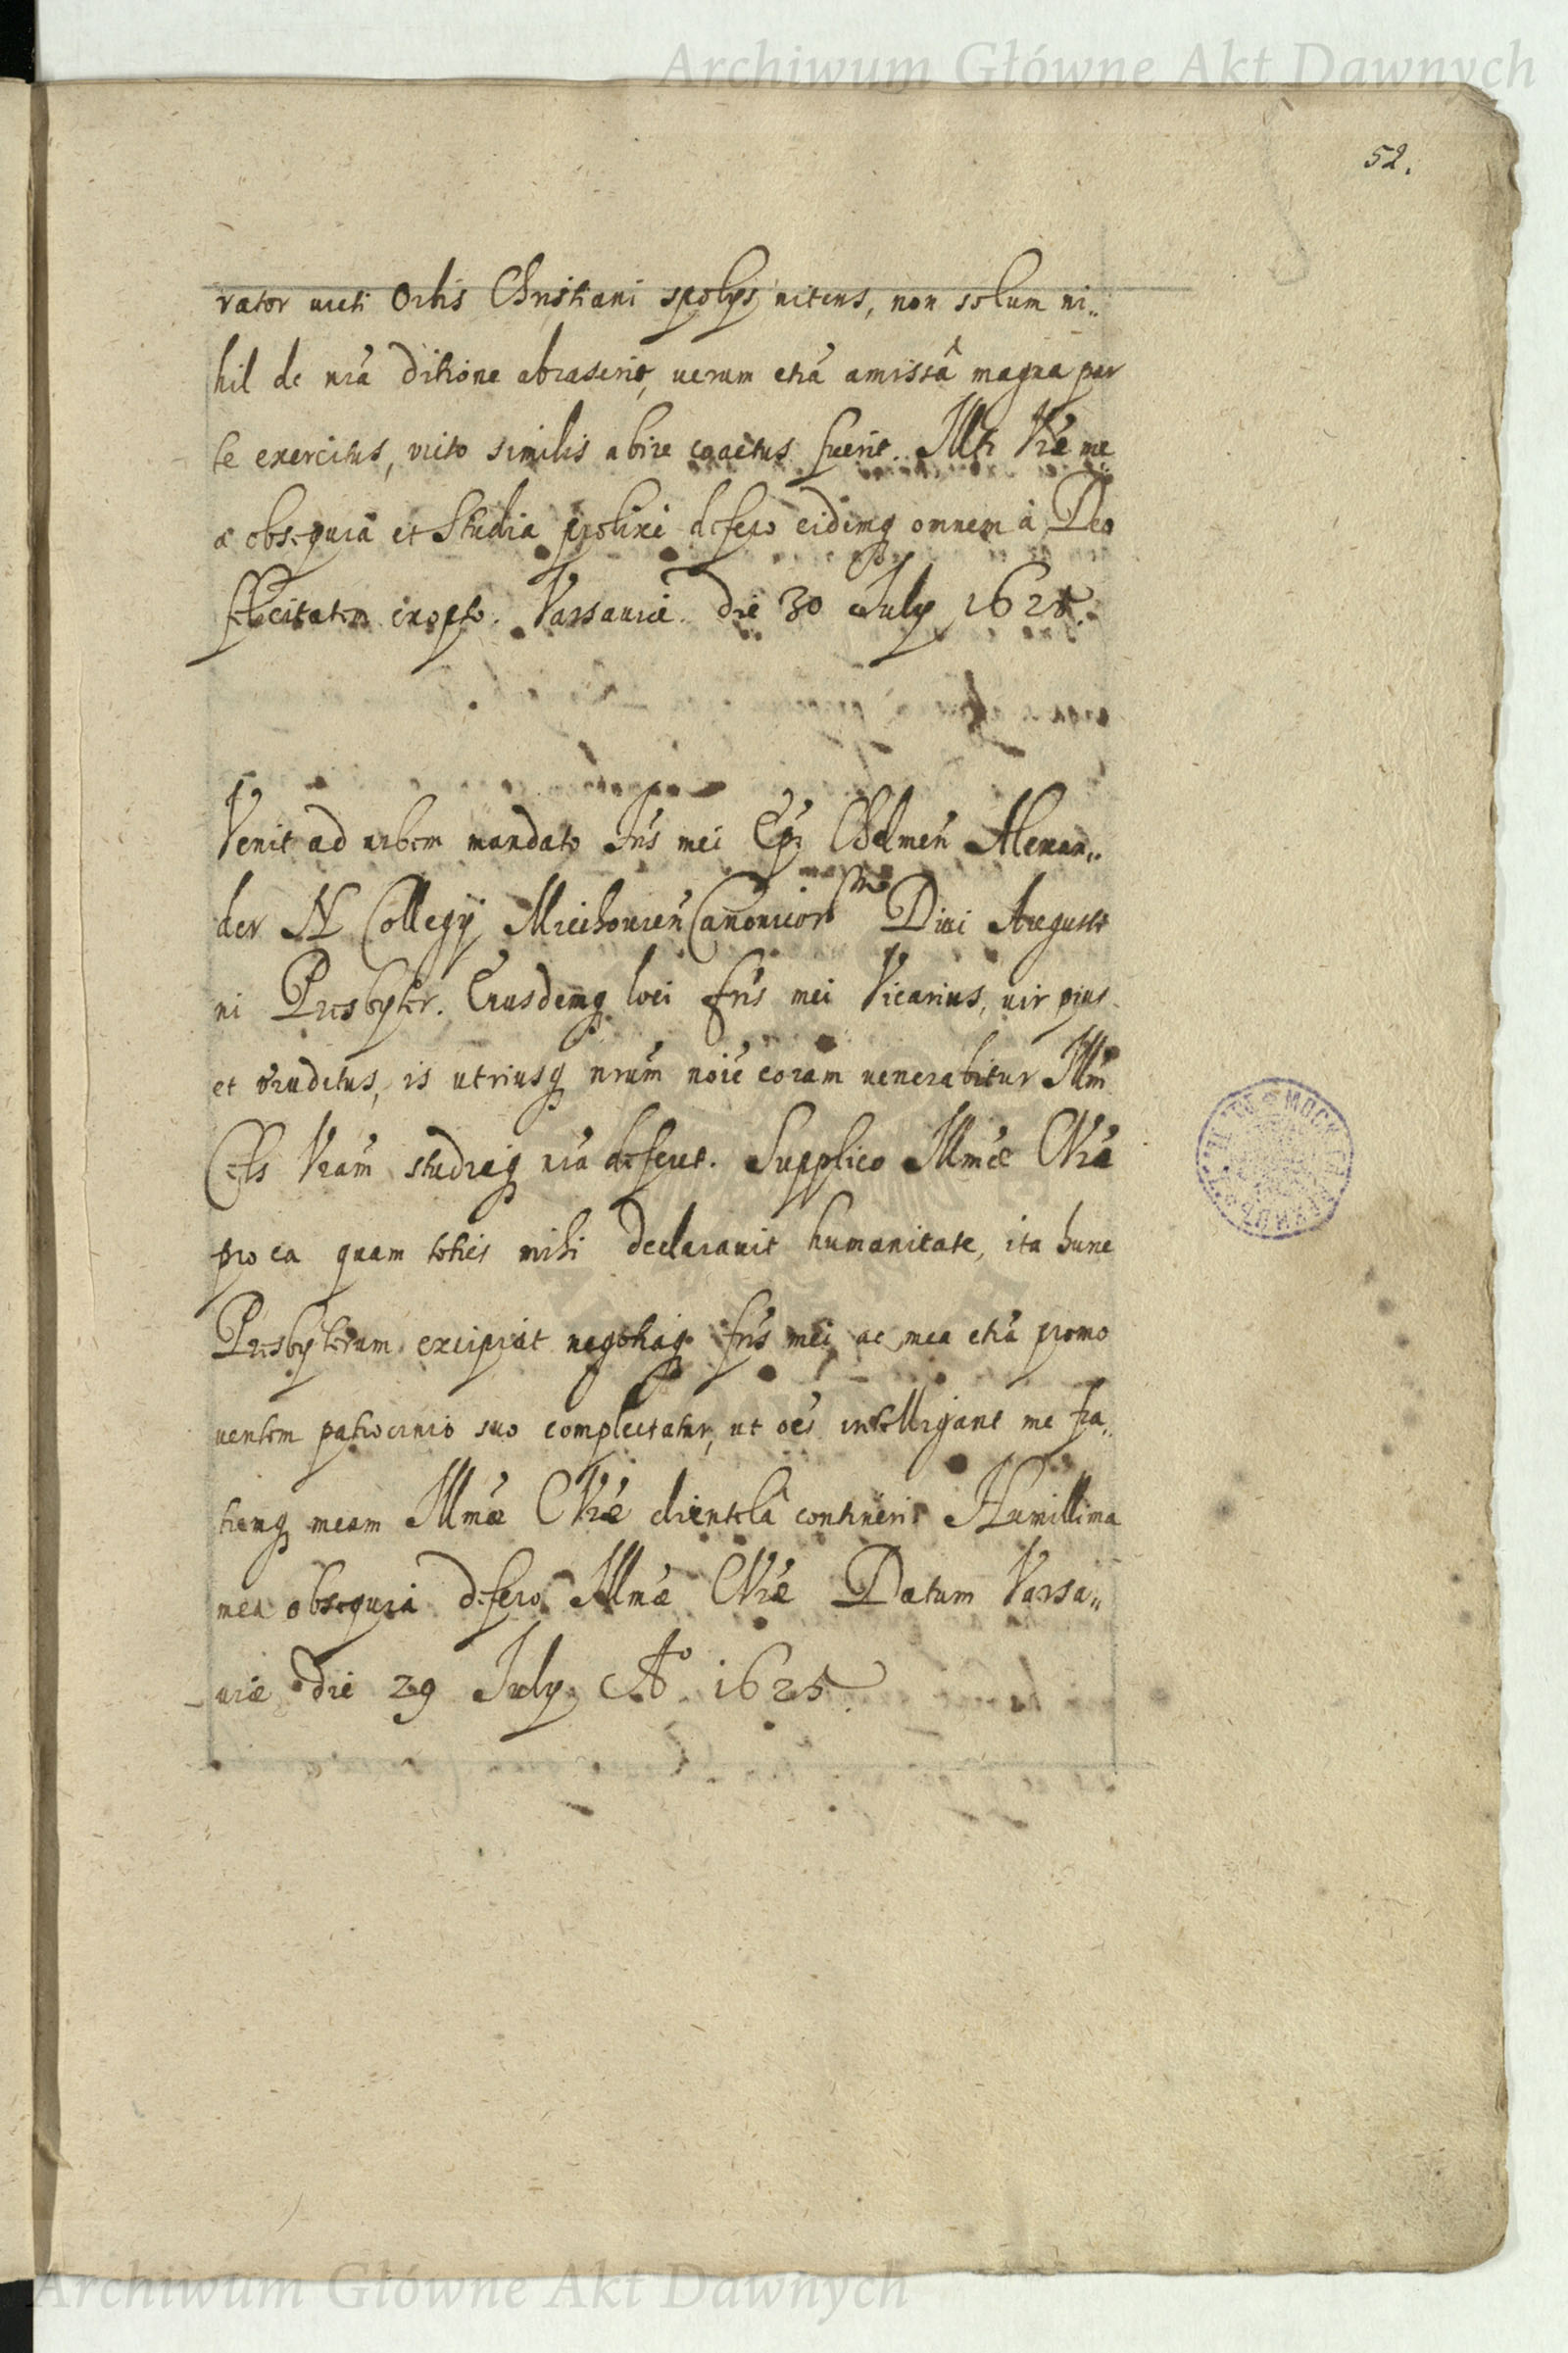 Archiwum Główne Akt Dawnych
52.
rator uicti Orbis Christiani spolijs nitens, non solum ni„
hil de nrā ditione abraserit, uerum etiā amissâ magna par
te exercitus, uicto similis abire coactus fuerit. Illti Vrae me„
a obsequia et Studia prolixè defero eidemq omnem à Deo
felicitatem exopto. Varsauiae. die 30 July 1625.
Venit ad urbem mandato frīs mei Epī Chelmeñ Alexan„
der N Collegij Miechouien Canonicor Diui Augusti
ni Presbyter. Eiusdemq loci frīs mei Vicarius, uir pius
et eruditus, is utriusq nrūm noīe coram venerabitur Illm
Cels Vrām studiaq nrā deferet. Supplico Illmae CVrā
pro ea quam toties mihi declarauit humanitate, ita hunc
Presbyterum excipiat negotiaq frīs mei ac mea etiā promo
uentem patrocinio suo complectatur, ut oēs intelligant me fra„
tremq meum Illmae CVrae clientelâ contineri. Humillima
mea obsequia defero Illmae CVrae Datum Varsa„
uiae die 29 July Aº 1625.
Archiwum Główne Akt Dawnych